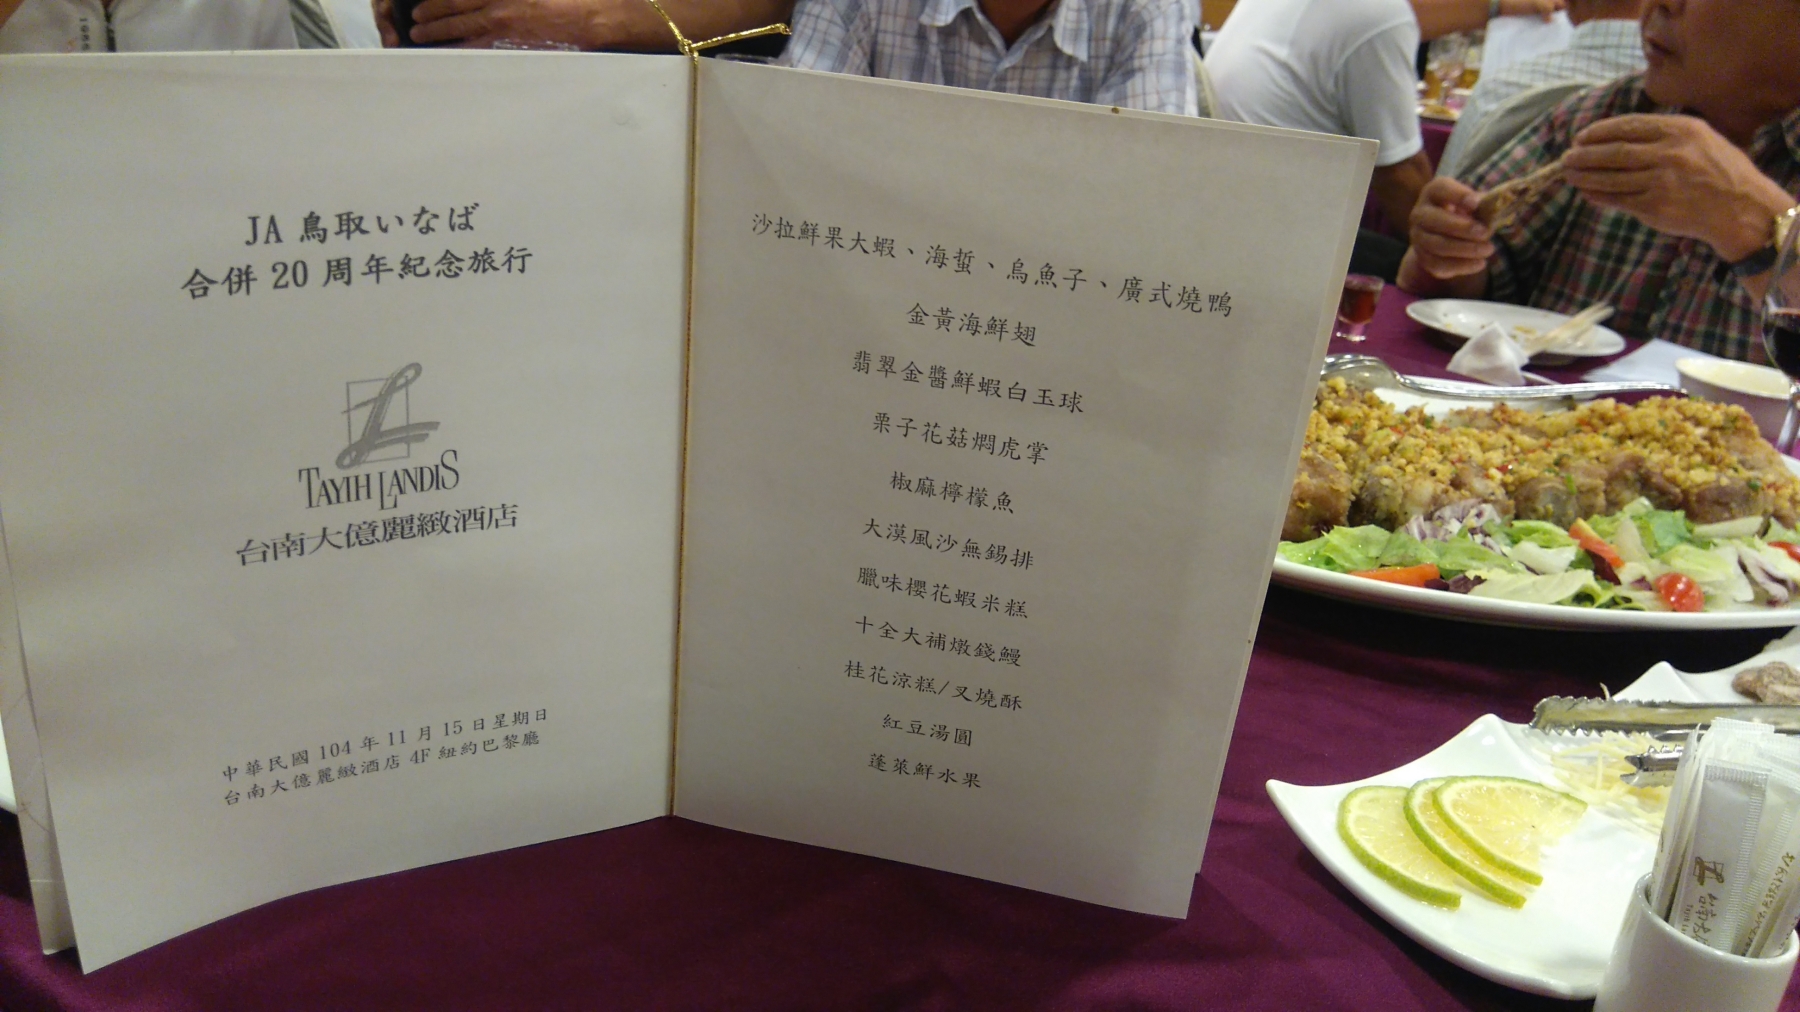 JA 鳥取いなば
合併 20 周年紀念旅行
TAYIH LANDIS
台南大億麗緻酒店
中華民國 104 年 11 月 15 日星期日
台南大億麗緻酒店 4F 紐約巴黎廳
沙拉鮮果大蝦、海蜇、烏魚子、廣式燒鴨
金黃海鮮翅
翡翠金醬鮮蝦白玉球
栗子花菇燜虎掌
椒麻檸檬魚
大漠風沙無錫排
臘味櫻花蝦米糕
十全大補燉錢鰻
桂花涼糕/叉燒酥
紅豆湯圓
蓬萊鮮水果